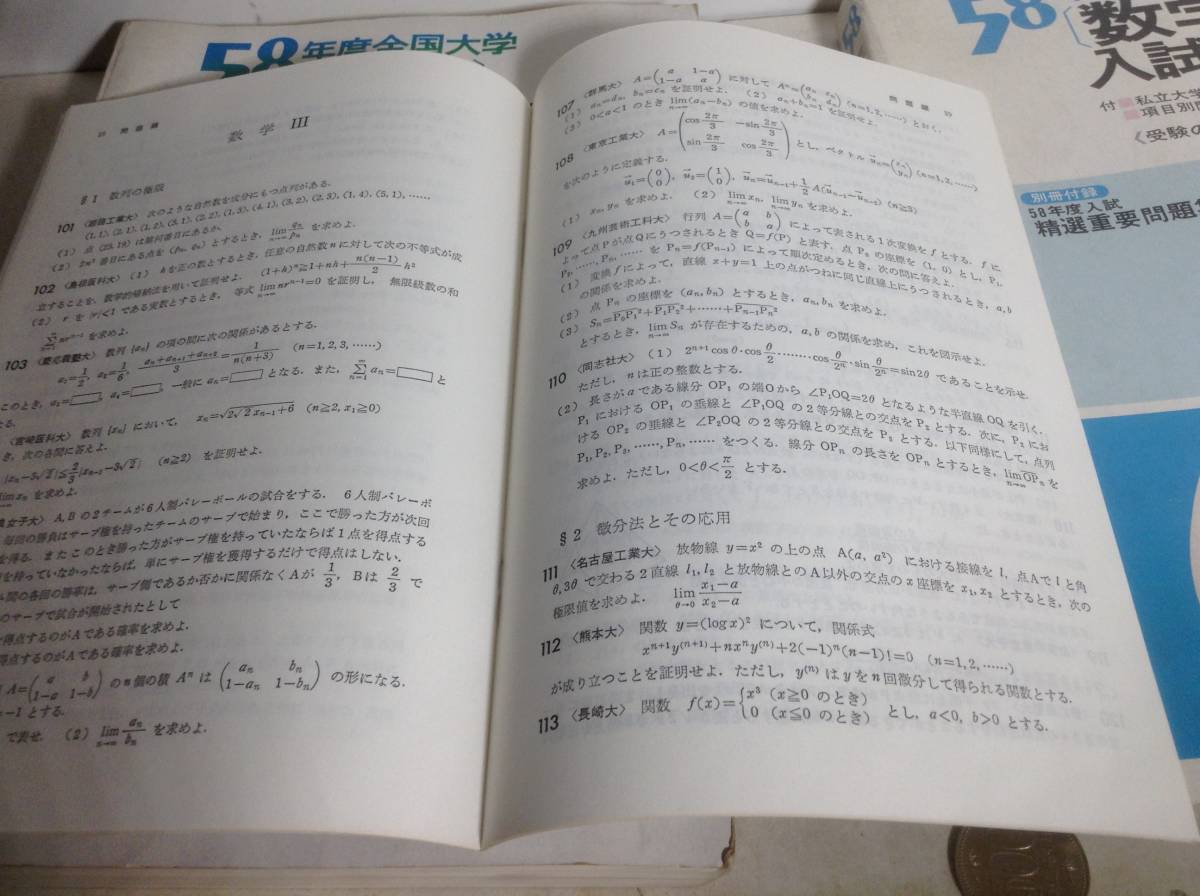 58年度全国大学
58
数学
入試
付 ■私立大学
■項目別問
《受験の
別冊付録
58年度入試
精選重要問題
問題編
数学 III
§1 数列の極限
101 〈姫路工業大〉 次のような自然数を成分にもつ点列がある.
(1, 1), (2, 1), (1, 2), (3, 1), (2, 2), (1, 3), (4, 1), (3, 2), (2, 3), (1, 4), (5, 1), ……
(1) 点 (23, 19) は第何番目にあるか.
(2) 2n² 番目にある点を (pₙ, qₙ) とするとき, lim_{n→∞} qₙ/pₙ を求めよ.
102 〈島根医科大〉 (1) h を正の数とするとき, 任意の自然数 n に対して次の不等式が成
立することを, 数学的帰納法を用いて証明せよ. (1+h)ⁿ≧1+nh+n(n−1)/2 h²
(2) r を |r|<1 である実数とするとき, 等式 lim_{n→∞} nrⁿ⁻¹=0 を証明し, 無限級数の和
∑_{n=1}^{∞} nrⁿ⁻¹ を求めよ.
103 〈慶応義塾大〉 数列 {aₙ} の項の間に次の関係があるとする.
a₁=1/2, a₂=1/6, (aₙ+aₙ₊₁+aₙ₊₂)/3=1/n(n+3) (n=1, 2, 3, ……)
このとき, a₃=□, a₄=□, 一般に aₙ=□ となる. また, ∑_{n=1}^{∞} aₙ=□ と
なる.
〈宮崎医科大〉 数列 {xₙ} において, xₙ=√(2√2 xₙ₋₁+6) (n≧2, x₁≧0)
き, 次の各問に答えよ.
|xₙ−3√2|≦2/3|xₙ₋₁−3√2| (n≧2) を証明せよ.
lim xₙ を求めよ.
女子大〉 A, B の2チームが6人制バレーボールの試合をする. 6人制バレーボ
毎回の勝負はサーブ権を持ったチームのサーブで始まり, ここで勝った方が次回
を得る. またこのとき勝った方がサーブ権を持っていたならば1点を得点する
を持っていなかったならば, 単にサーブ権を獲得するだけで得点はしない.
ム間の各回の勝率は, サーブ側であるか否かに関係なくAが 1/3, Bは 2/3 で
のサーブで試合が開始されたとして
得点するのがAである確率を求めよ.
得点するのがAである確率を求めよ.
A=(a b / 1−a 1−b) の n 個の積 Aⁿ は (aₙ bₙ / 1−aₙ 1−bₙ) の形になる.
=−1 とする.
で表せ. (2) lim_{n→∞} aₙ/bₙ を求めよ.
問題編
107 〈群馬大〉 A=(a 1−a / 1−a a) に対して Aⁿ=(aₙ cₙ / bₙ dₙ) (n=1, 2, ……) とおく.
(1) aₙ=dₙ, bₙ=cₙ を証明せよ. (2) aₙ+bₙ=1 を証明せよ.
(3) 0<a<1 のとき lim_{n→∞}(aₙ−bₙ) の値を求めよ.
108 〈東京工業大〉 A=(cos 2π/3 −sin 2π/3 / sin 2π/3 cos 2π/3) とし, ベクトル u⃗ₙ=(xₙ / yₙ) (n=1, 2, ……)
を次のように定義する.
u⃗₁=(0 / 0), u⃗₂=(1 / 0), u⃗ₙ=u⃗ₙ₋₁+1/2 A(u⃗ₙ₋₁−u⃗ₙ₋₂) (n≧3)
(1) xₙ, yₙ を求めよ. (2) lim_{n→∞} xₙ, lim_{n→∞} yₙ を求めよ.
109 〈九州芸術工科大〉 行列 A=(a b / b a) によって表される1次変換を f とする. f に
よって点 P が点 Q にうつされるとき Q=f(P) と表す. 点 P₀ の座標を (1, 0) とし, P₁,
P₂, ……, Pₙ, …… を Pₙ=f(Pₙ₋₁) によって順次定めるとき, 次の問に答えよ.
(1) 変換 f によって, 直線 x+y=1 上の点がつねに同じ直線上にうつされるとき, a, b
の関係を求めよ.
(2) 点 Pₙ の座標を (aₙ, bₙ) とするとき, aₙ, bₙ を求めよ.
(3) Sₙ=P₀P₁²+P₁P₂²+……+Pₙ₋₁Pₙ²
とするとき, lim_{n→∞} Sₙ が存在するための, a, b の関係を求め, これを図示せよ.
110 〈同志社大〉 (1) 2ⁿ⁺¹cosθ·cos θ/2 ……… cos θ/2ⁿ·sin θ/2ⁿ=sin2θ であることを示せ.
ただし, n は正の整数とする.
(2) 長さが a である線分 OP₁ の端Oから ∠P₁OQ=2θ となるような半直線 OQ を引く.
P₁ における OP₁ の垂線と ∠P₁OQ の2等分線との交点を P₂ とする. 次に, P₂ にお
ける OP₂ の垂線と ∠P₂OQ の2等分線との交点を P₃ とする. 以下同様にして, 点列
P₁, P₂, P₃, ……, Pₙ, …… をつくる. 線分 OPₙ の長さを OPₙ とするとき, lim_{n→∞} OPₙ を
求めよ. ただし, 0<θ<π/2 とする.
§2 微分法とその応用
111 〈名古屋工業大〉 放物線 y=x² の上の点 A(a, a²) における接線を l, 点Aで l と角
θ, 3θ で交わる2直線 l₁, l₂ と放物線とのA以外の交点の x 座標を x₁, x₂ とするとき, 次の
極限値を求めよ. lim_{θ→0} (x₁−a)/(x₂−a)
112 〈熊本大〉 関数 y=(log x)² について, 関係式
xⁿ⁺¹y⁽ⁿ⁺¹⁾+nxⁿy⁽ⁿ⁾+2(−1)ⁿ(n−1)!=0 (n=1, 2, ……)
が成り立つことを証明せよ. ただし, y⁽ⁿ⁾ は y を n 回微分して得られる関数とする.
113 〈長崎大〉 関数 f(x)={x³ (x≧0 のとき) / 0 (x≦0 のとき) とし, a<0, b>0 とする.